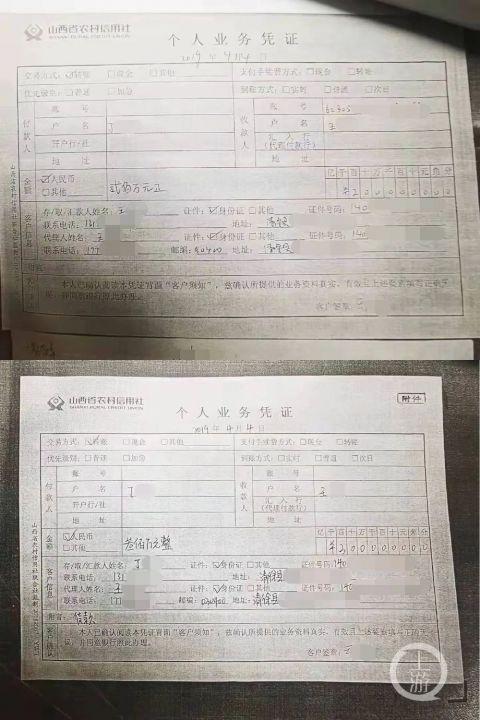 山西省农村信用社
个人业务凭证
2019年4月4日
交易方式：☑转账 □现金 □其他 支付手续费方式：□现金 □转账
优先级别：□普通 □加急 到账方式：□实时 □普通 □次日
付款人 账号 收款人 账号
户名 丁 户名 王
开户行/社 汇入行（代理付款行）
地址 地址
金额 ☑人民币 □其他 贰佰万元正 亿千百十万千百十元角分
存/取/汇款人姓名：王 证件：☑身份证 □其他 证件号码：140
联系电话：131 地址：清徐县
代理人姓名：王 证件：☑身份证 □其他 证件号码：140
联系电话：177 邮编： 地址：清徐县
客户信息
本人已确认阅读本凭证背面“客户须知”，兹确认所提供的业务资料真实、有效且上述要素填写正确无误，并同意银行照此办理。
客户签章：王
山西省农村信用社
SHANXI RURAL CREDIT UNION
附件
个人业务凭证
2019年4月4日
交易方式：☑转账 □现金 □其他 支付手续费方式：□现金 □转账
优先级别：□普通 □加急 到账方式：□实时 □普通 □次日
付款人 账号 收款人 账号
户名 丁 户名 王
开户行/社 汇入行（代理付款行）
地址 地址
金额 ☑人民币 □其他 叁佰万元整 亿千百十万千百十元角分
存/取/汇款人姓名：丁 证件：☑身份证 □其他 证件号码：140
联系电话：131 地址：清徐县
代理人姓名：王 证件：☑身份证 □其他 证件号码：140
联系电话：177 邮编：030400 地址：清徐县
客户信息
附言：借款
本人已确认阅读本凭证背面“客户须知”，兹确认所提供的业务资料真实、有效且上述要素填写正确无误，并同意银行照此办理。
客户签章：王
上游